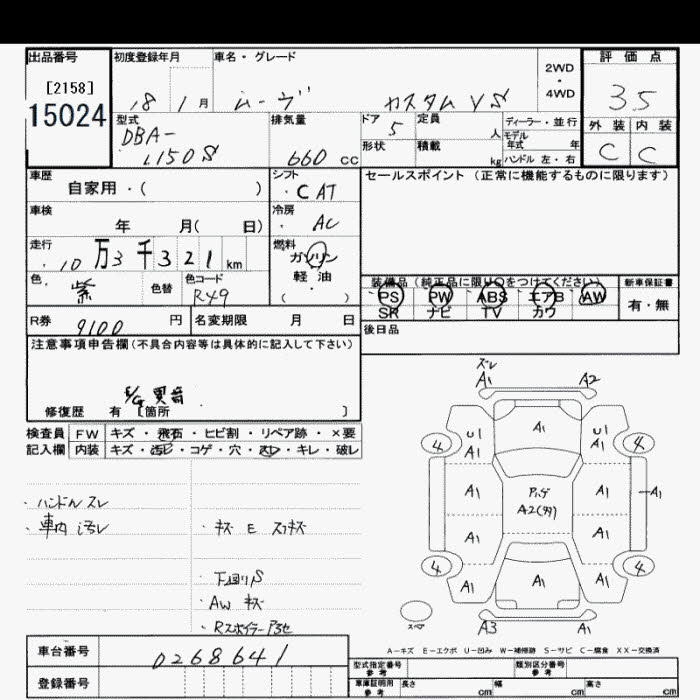 出品番号 初度登録年月 車名・グレード 2WD・4WD 評価点
[2158] 18 1月 ムーヴ カスタムVS 3.5
15024 型式 排気量 ドア 定員 ディーラー・並行 外装 内装
DBA- 5 人 モデル年式 年 C C
L150S 660 cc 形状 積載 kg ハンドル 左・右
車歴 シフト セールスポイント (正常に機能するものに限ります)
自家用・( ) ・CAT
車検 冷房
年 月( 日) ・AC
走行 燃料
・10万3千321km ガソリン
色 色替 色コード 軽・油
・紫 R49 ( )
装備品(純正品に限り○をつけてください) 新車保証書
PS PW ABS エアB AW 有・無
SR ナビ TV カワ
R券 9100 円 名変期限 月 日
後日品
注意事項申告欄(不具合内容等は具体的に記入して下さい)
E/G異音
修復歴 有 [箇所 ]
検査員 FW キズ・飛石・ヒビ割・リペア跡・×要
記入欄 内装 キズ・汚レ・コゲ・穴・スレ・キレ・破レ
・ハンドルスレ
・車内汚レ ・キズ E スリキズ
・下回りS
・AWキズ
・Rスポイラー
ズレ
A1 A2
A1
4 U1 A1 U1 A1 4
A1 A1 A1
A2(多)
A1 A1
4 4
A1 A1 A1
スペア A3 A1
A−キズ E−エクボ U−凹み W−補修跡 S−サビ C−腐食 XX−交換済
車台番号 0268641
登録番号
型式指定番号 参考 類別区分番号 参考
車庫証明用 参考 長さ cm 幅 cm 高さ cm